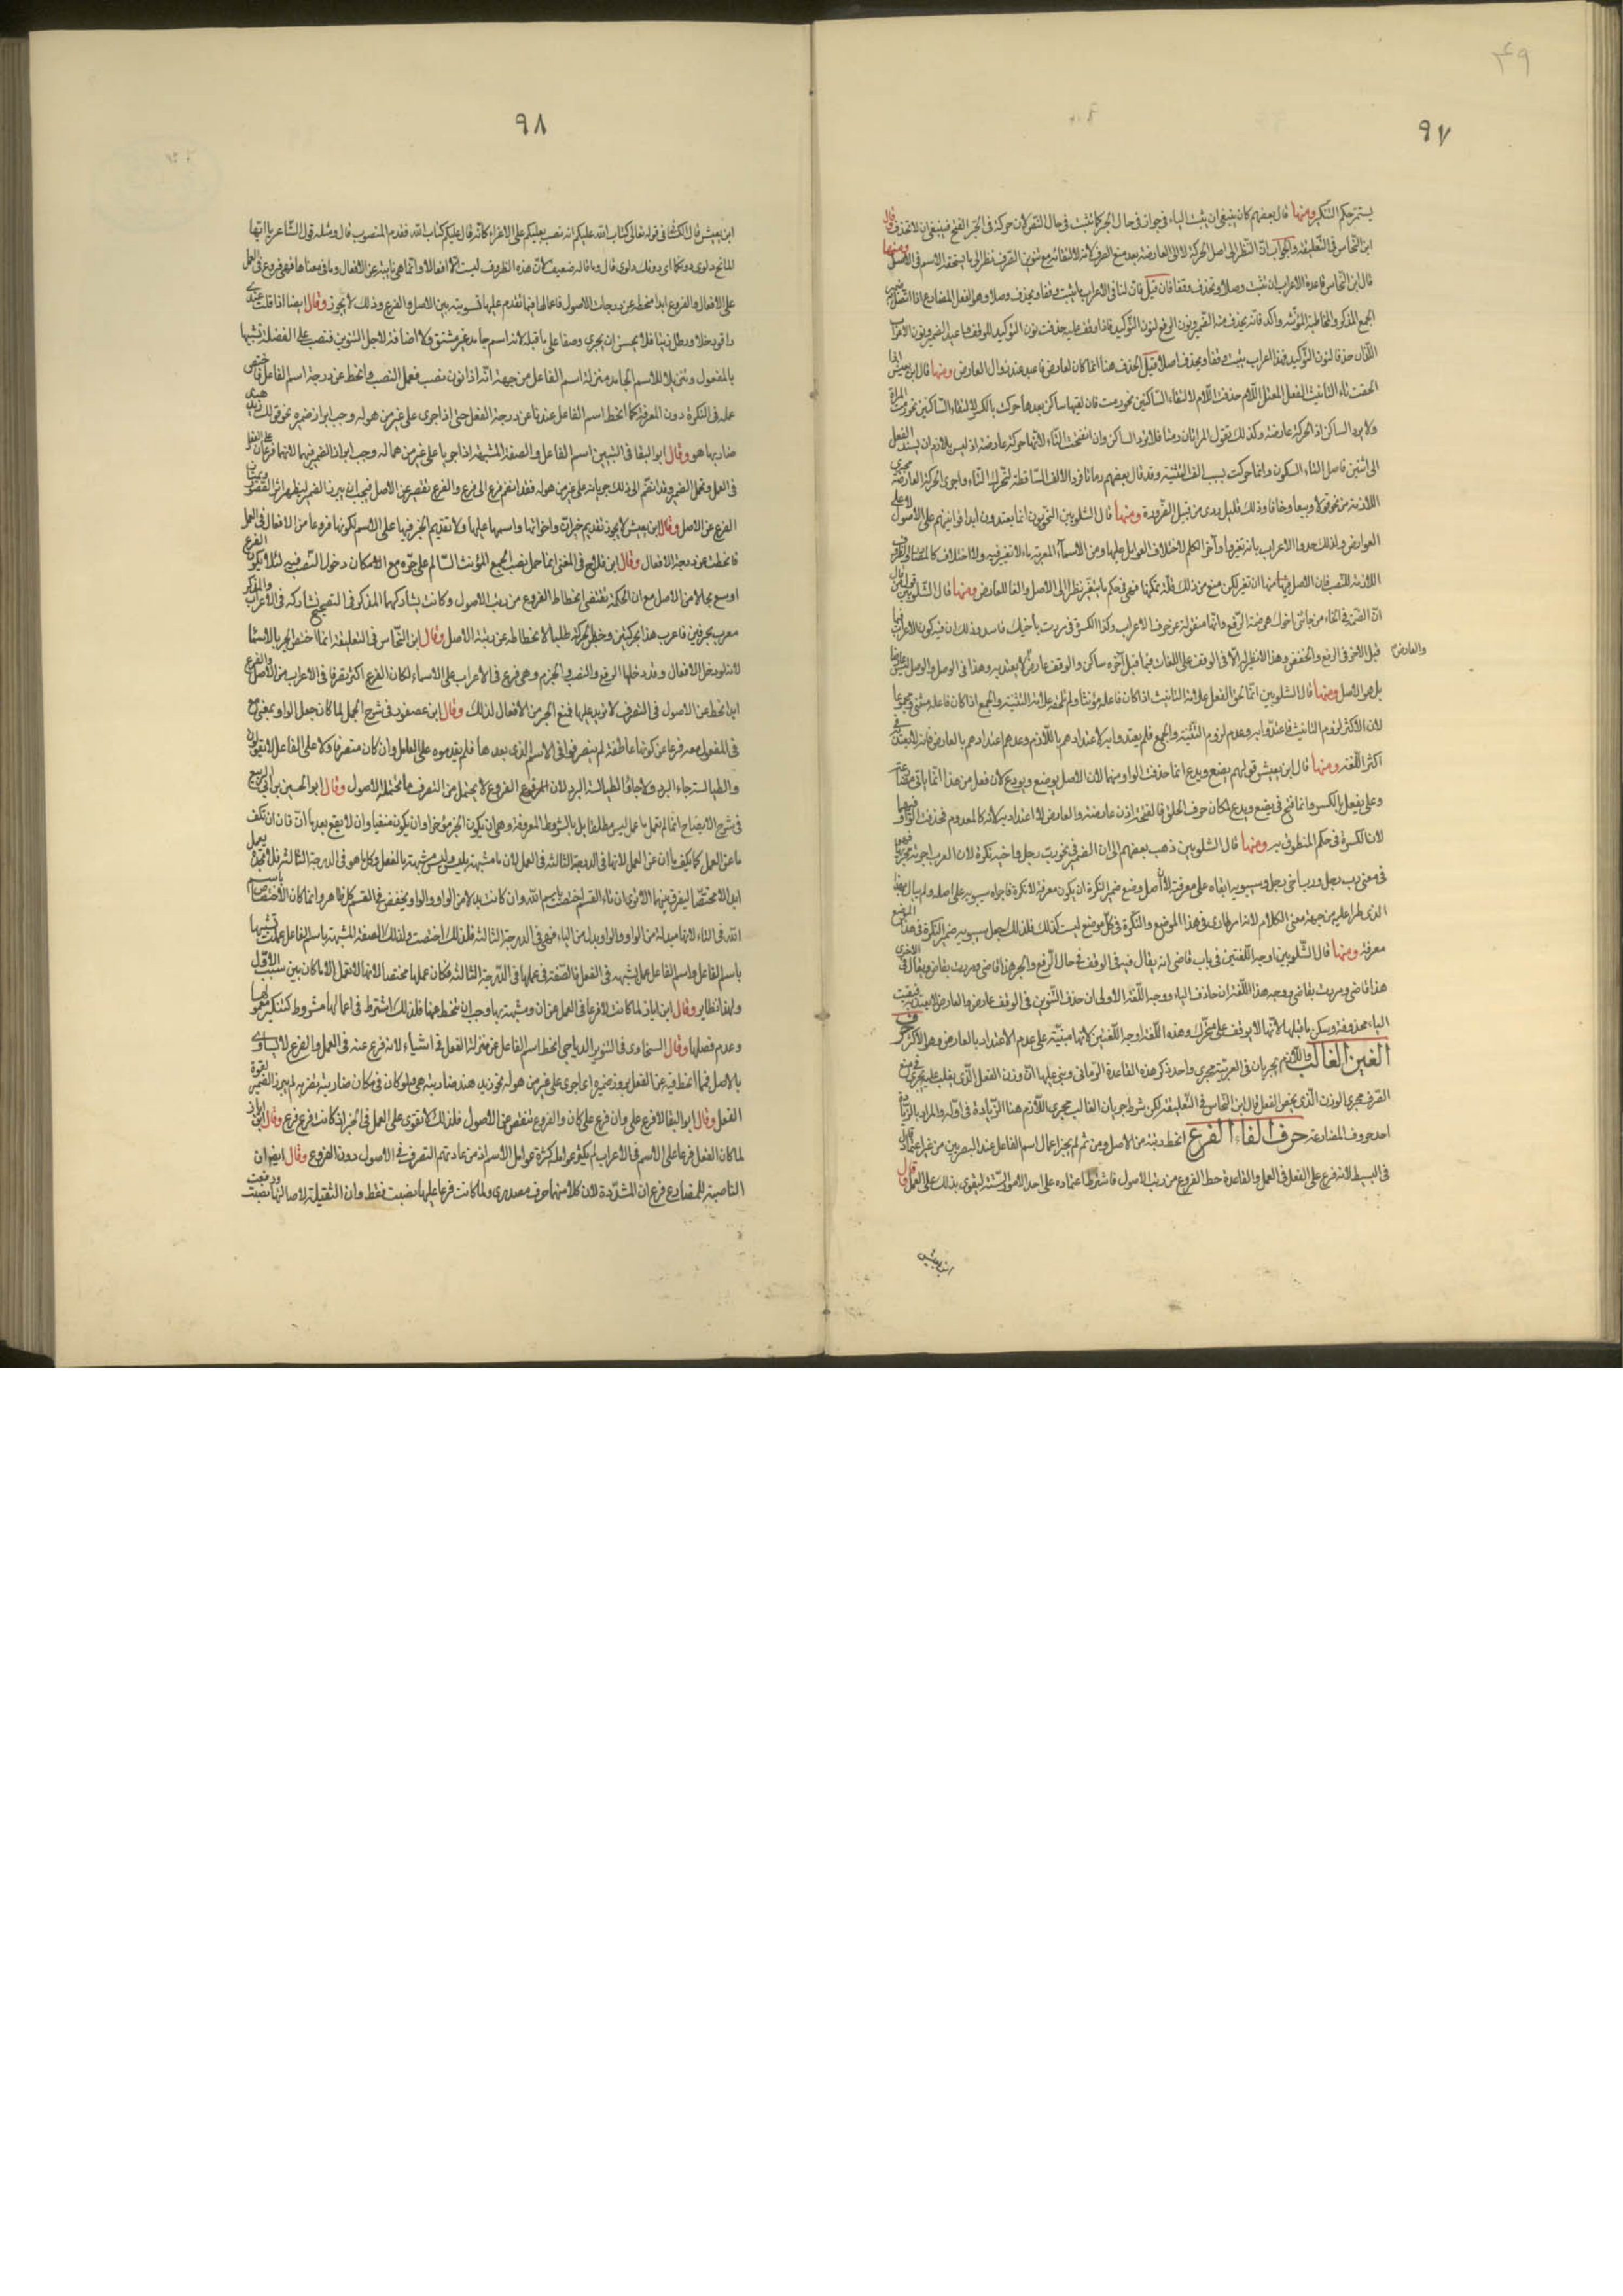 ٤٩
٩٧
يستمر حكم التنكير ومنها قال بعضهم كان ينبغي ان يثبت الياء في جوار في حال الجر كما يثبت في حال النصب لان حركته في الجر الفتح فينبغي ان لا تحذف قال
ابن النحاس في التعليقة والجواب ان النظر الى اصل الحركة لا الى العارضة بعد منع الصرف لانه لا التقاء مع تنوين الصرف نظرا الى ما يستحقه الاسم في الاصل ومنها
قال ابن النحاس قاعدة الاعراب ان تثبت وصلا وتحذف وقفا فان قيل فان لنا في الاعراب ما يثبت وقفا ويحذف وصلا وهو الفعل المضارع اذا اتصل به ضمير
الجمع المذكر والمخاطبة المؤنثة واكد فانه يحذف منه الضمير ونون الرفع لنون التوكيد فاذا وقف عليه حذفت نون التوكيد للوقف فيعاد الضمير ونون الاعراب
اللذان حذفا لنون التوكيد فهذا اعراب يثبت وقفا ويحذف اصلا قيل الحذف هنا انما كان لعارض فاعيد عند زوال العارض ومنها قال ابن يعيش انما
الحقت تاء التأنيث الفعل المعتل اللام حذفت اللام لالتقاء الساكنين نحو رمت فان لقيها ساكن بعدها حرك بالكسر لالتقاء الساكنين نحو رمت المرأة
ولا يرد الساكن اذ الحركة عارضة وكذلك نقول المرأتان رمتا فلا نرد الساكن وان انفتحت التاء لانها حركة عارضة اذ ليس بلازم ان يسند الفعل
الى اثنين فاصل التاء السكون وانما حركت بسبب الف التثنية وقد قال بعضهم رماتا فرد الالف الساقطة لتحرك التاء واجرى الحركة العارضة مجرى
اللازمة من نحو قولا وبيعا وخافا وذلك قليل ردي من قبيل الضرورة ومنها قال الشلوبين النحويون انما يعتدون ابدا قوانينهم على الاصول لا على
العوارض ولذلك حدوا الاعراب بانه تغيير اواخر الكلم لاختلاف العوامل عليها ومن الاسماء المعربة ما لا تغير فيه ولا اختلاف كالمصادر والظروف
اللازمة للنصب فان الاصل فيها ان تغير لكن منع من ذلك قلة تمكنها فهي في حكم ما يتغير نظرا الى الاصل والغاء للعارض ومنها قال الشلوبين قول من قال
ان الضمة في الخاء من جائني اخوك هي ضمة الرفع وانها منقولة عن حرف الاعراب وكذا الكسرة في مررت باخيك فاسد وذلك ان فيه كون الاعراب فيما
قبل الاخر في الرفع والخفض وهذا لا نظير له الا في الوقف على اللغات فيما قبل آخره ساكن والوقف عارض لا يعتد به وهذا في الوصل والوصل ليس عارضا
والعارض
بل هو الاصل ومنها قال الشلوبين انما لحق الفعل علامة التأنيث اذا كان فاعله مؤنثا ولم تلحقه علامة التثنية والجمع اذا كان فاعله مثنى ومجموعا
لان الاكثر لزوم التأنيث فاعتدوا به وعدم لزوم التثنية والجمع فلم يعتدوا به لاعتدادهم باللازم وعدم اعتدادهم بالعارض فانه لا يعتد به في
اكثر اللغة ومنها قال ابن يعيش قولهم يضع ويدع انما حذفت الواو منهما لان الاصل يوضع ويودع لان فعل من هذا انما ياتي مضارعه
على يفعل بالكسر وانما فتح في يضع ويدع لمكان حرف الحلق فالفتحة اذن عارضة والعارض لا اعتداد به لانه كالمعدوم فحذفت الواو فيهما
لان الكسرة في حكم المنطوق به ومنها قال الشلوبين ذهب بعضهم الى ان الضمير في نحو ربه رجل واخيه نكرة لان العرب اجرته مجرى
في معنى رب رجل ورب اخي رجل وسيبويه ابقاه على معرفته لان اصل وضع ضمير النكرة ان يكون معرفة لا نكرة فاجراه سيبويه على اصله ولم يبال بهذا
الذي طرا عليه من جهة معنى الكلام لانه امر طارئ في هذا الموضع والنكرة في كل موضع ليست كذلك فلذلك جعل سيبويه ضمير النكرة في هذا الموضع
معرفة ومنها قال الشلوبين اوجه اللغتين في باب قاضي انه يقال فيه في الوقف في حال الرفع والجر هذا قاض ومررت بقاض ويقال في الاخرى
هذا قاضي ومررت بقاضي ووجه هذه اللغة ان حاذف الياء ووجه اللغة الاولى ان حذف التنوين في الوقف عارض والعارض لا يعتد به فبقيت
الياء محذوفة وسكن ما قبلها لانها لا يوقف على متحرك وهذه اللغة اوجه اللغتين لانها مبنية على عدم الاعتداد بالعارض وهو الاكثر حرف
الغين الغالب واللازم يجريان في العربية مجرى واحد ذكر هذه القاعدة الرماني وبني عليها ان وزن الفعل الذي يغلب عليه يجري في منع
الصرف مجرى الوزن الذي يخص الفعل قال ابن النحاس في التعليقة لكن شرط جريان الغالب مجرى اللازم هنا الزيادة في اوله والمراد بالزيادة
احد حروف المضارعة حرف الفاء الفرع انحط رتبة من الاصل ومن ثم لم يجز اعمال اسم الفاعل عند البصريين من غير اعتماد قال
في البسيط لانه فرع على الفعل في العمل والقاعدة حط الفروع من رتب الاصول فاشترط اعتماده على احد الامور الستة ليقوى بذلك على العمل وقال
ابن يعيش
٩٨
ابن يعيش قال الكسائي في قوله تعالى كتاب الله عليكم انه نصب بعليكم على الاغراء كانه قال عليكم كتاب الله فقدم المنصوب قال ومثله قول الشاعر يا ايها
المائح دلوي دونكا اي دونك دلوي قال وما قاله ضعيف لان هذه الظروف ليست افعالا وانما هي نائبة عن الافعال وما في معناها فهي فروع في العمل
على الافعال والفروع ابدا منحطة عن درجات الاصول فاعمالها فيما تقدم عليها تسوية بين الاصل والفرع وذلك لا يجوز وقال ايضا اذا قلت عندي
راقود خلا ورطل زيتا فلا يحسن ان يجري وصفا على ما قبله لانه اسم جامد غير مشتق ولا اضافة لاجل التنوين فنصب على الفضلة تشبيها
بالمفعول وتنزيلا للاسم الجامد منزلة اسم الفاعل من جهة انه اذا نون نصب فعمل النصب وانحط عن درجة اسم الفاعل فاختص
عمله في النكرة دون المعرفة كما انحط اسم الفاعل عندنا عن درجة الفعل حتى اذا جرى على غير من هو له وجب ابراز ضميره نحو قولك زيد هند
ضاربها هو وقال ابو البقا في التبيين اسم الفاعل والصفة المشبهة اذا جريا على غير من هما له وجب ابراز الضمير فيهما لانهما فرعان على الفعل
في العمل وتحمل الضمير وقد انضم الى ذلك جريانه على غير من هو له فقد انضم فرع الى فرع والفرع تقصر عن الاصل فيجب ان يبرز الضمير ليظهر اثر القصور ويمتاز
الفرع عن الاصل وقال ابن يعيش لا يجوز تقديم خبر ان واخواتها ولا اسمها عليها ولا تقديم الخبر فيها على الاسم لكونها فروعا من الافعال في العمل
فانحطت عن درجة الافعال وقال ابن فلاح في المغنى انما حمل نصب الجمع المؤنث السالم على جره مع الامكان دخول النصب فيه لئلا يكون الفرع
اوسع مجالا من الاصل مع ان الحكمة تقتضي انحطاط الفروع من رتب الاصول وكانت يشاركها المذكر في التصحيح شاركته في الاعراب والمذكر
معرب بحرفين فاعرب هذا بحركتين وحظر حركة طلبا لانحطاطه عن رتبة الاصل وقال ابن النحاس في التعليقة انما اختص الجر بالاسماء
لانه لو دخل الافعال وقد دخلها الرفع والنصب والجزم وهي فرع في الاعراب على الاسماء لكان الفرع اكثر تصرفا في الاعراب من الاصل والفرع
ابدا ينحط عن الاصول في التصرف لا تزيد عليها فمنع الجر من الافعال لذلك وقال ابن عصفور في شرح الجمل لما كان جعل الواو بمعنى مع
في المفعول معه فرعا عن كونها عاطفة لم يتصرفوا في الاسم الذي بعدها فلم يقدموه على العامل وان كان متصرفا ولا على الفاعل لا يقولون
والطيالسة جاء البرد ولا جاء والطيالسة البرد لان الفروع لا يحتمل من التصرف ما تحتمله الاصول وقال ابو الحسين بن ابي الربيع
في شرح الايضاح انما لم تعمل ما عمل ليس مطلقا بل بالشروط المعروفة وهي ان يكون الخبر مؤخرا وان يكون منفيا وان لا يقع بعدها ان فان ان تكف
ما عن العمل كما يكف ما ان عن العمل لانها في الدرجة الثالثة في العمل لان ما مشبهة بليس وليس مشبهة بالفعل وكل ما هو في الدرجة الثالثة فلا تجده يعمل
ابدا الا مختصا ليفرق بينهما الا ترى ان تاء القسم اختصت باسم الله وان كانت بدلا من الواو والواو يخفض في القسم كل ظاهر وانما كان الاختصاص باسم
الله في التاء لانها مبدلة من الواو والواو بدل من الباء فهي في الدرجة الثالثة فلذلك اختصت ولذلك الصفة المشبهة باسم الفاعل عملت تشبيها
باسم الفاعل واسم الفاعل عمل بشبهه في الفعل فالصفة في عملها في الدرجة الثالثة فكان عملها مختصا لانها لا تعمل الا ما كان من سبب الاول
ولهذا نظاير وقال ابن اياز لما كانت لا فرعا في العمل عن ان ومشبهة بها وجب ان تنحط عنها فلذلك اشترط في اعمالها شروط كتنكير معمولها
وعدم فصلها وقال السخاوي في تنوير الدياجي انحط اسم الفاعل عن منزلة الفعل في اشياء لانه فرع عنه في العمل والفرع لا يساوي
بالاصل فمما انحط فيه عن الفعل بروز ضميره اي اجري على غير من هو له نحو زيد هند ضاربته هي ولو كان في مكان ضاربته تضربه لم يبرز الضمير لقوة
الفعل وقال ابو البقا لا فرع على ان وان فرع على كان والفروع تنقص عن الاصول فلذلك لا تقوى على العمل في الخبر اذ كانت فرع فرع وقال ابن اياز
لما كان الفعل فرعا على الاسم في الاعراب لم يكثر عوامله كثرة عوامل الاسم اذ من عادتهم التصرف في الاصول دون الفروع وقال ايضا ان
الناصبة للمضارع فرع ان المشددة لان كلا منهما حرف مصدري ولما كانت فرعا عليها نصبت فقط وان الثقيلة لاصالتها نصبت ورفعت